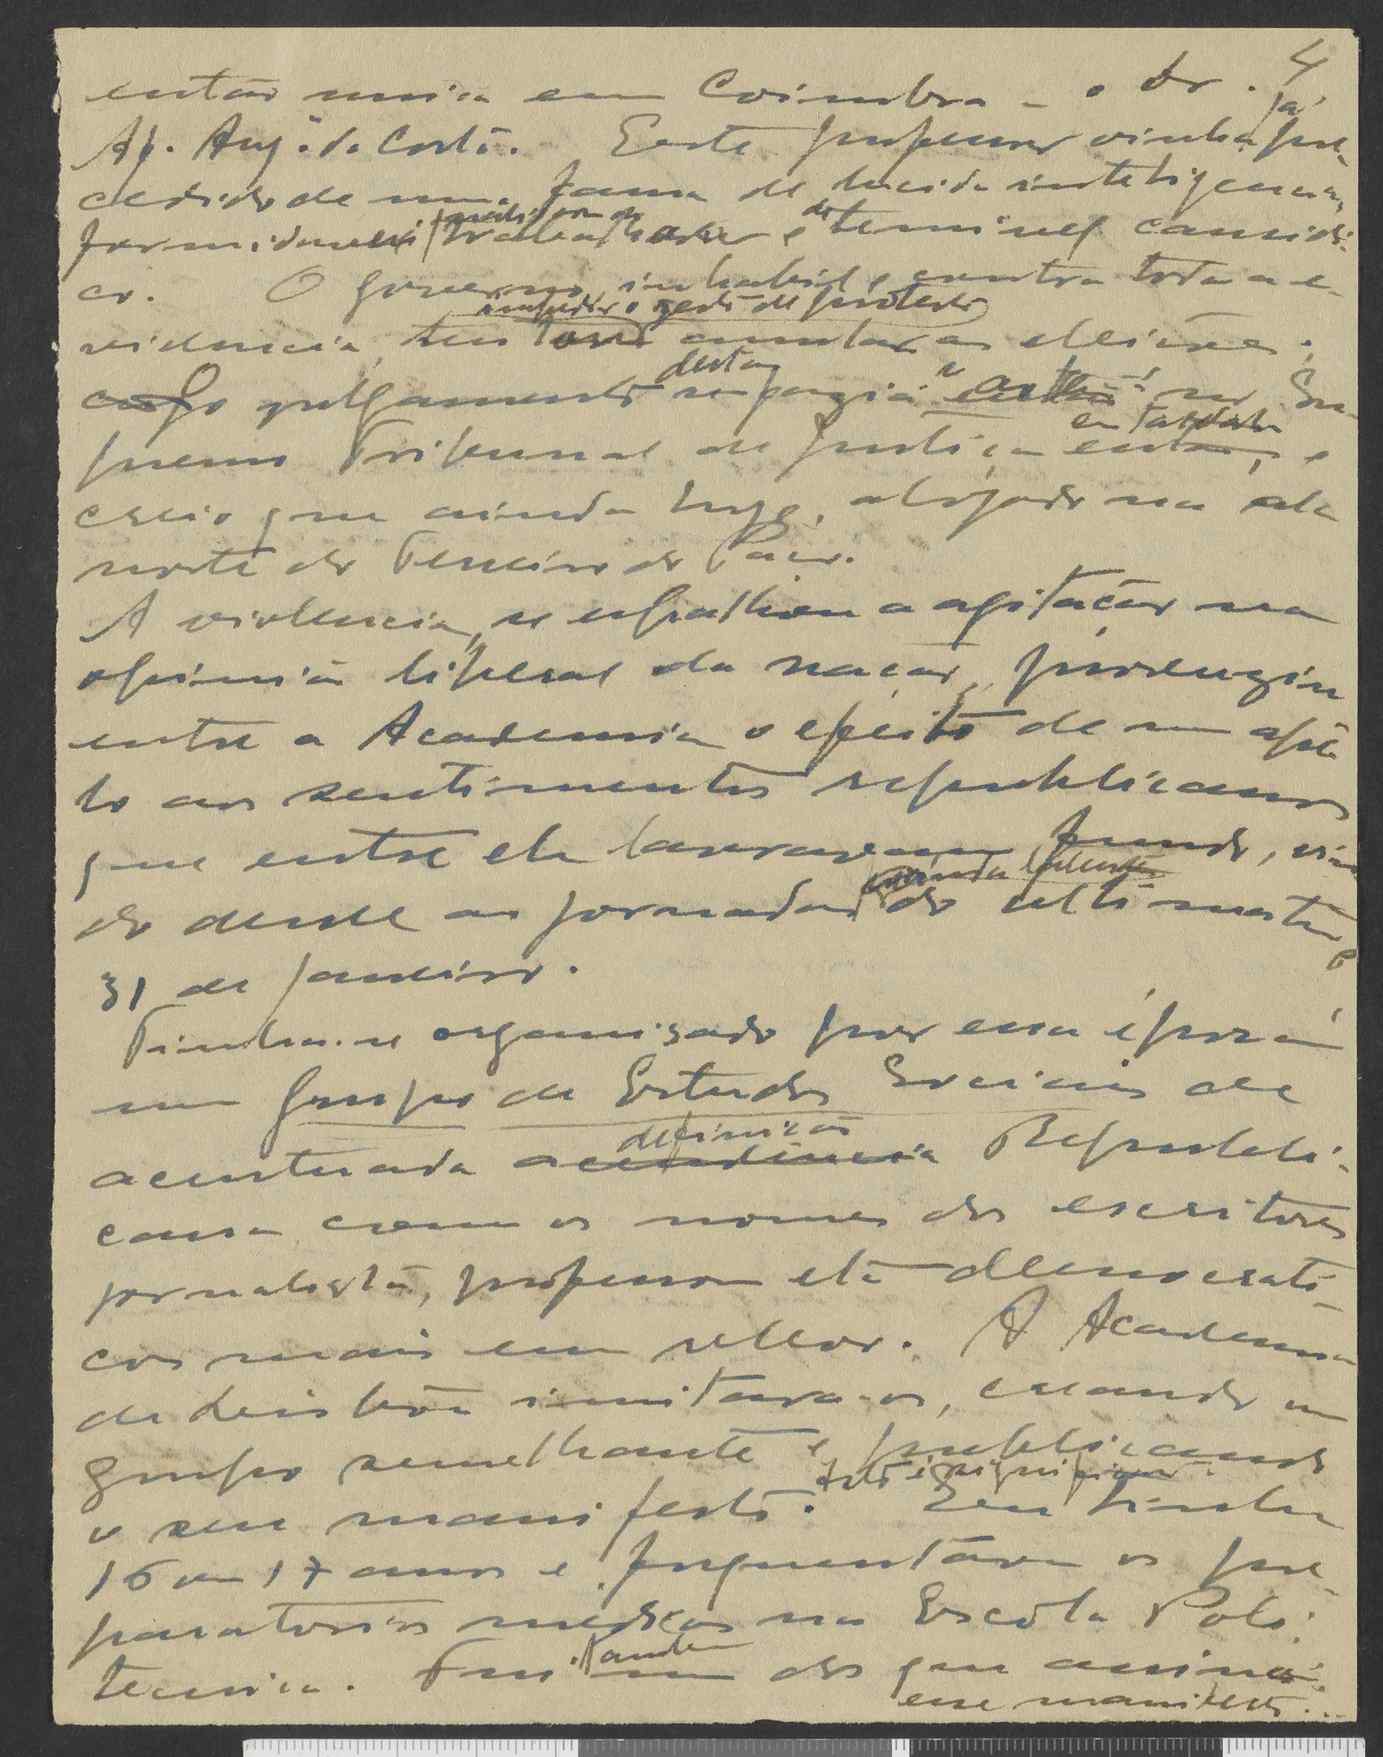 4
então unica em Coimbra – o dr.
Af. Aug.to da Costa. Este professor vinha já pre-
cedido de uma fama de lucida inteligencia,
formidavel trabalhador e de temivel causidi-
co. O governo, inhabil e contra toda a e-
impedir o gesto de protesto
videncia, annular as eleições;
cujo julgamento desta se fazia no Su-
premo Tribunal de Justiça então, e
creio que ainda hoje, alojado na ala
norte do Terreiro do Paço.
A violencia, se espalhou a agitação na
opinião liberal da nação, produziu
entre a Academia o efeito de um apê-
lo aos sentimentos republicanos
que entre ela lavravam fundo, vin-
do desde as jornadas do ultimatum e
31 de Janeiro.
Tinha-se organisado por essa época
um Grupo de Estudos Sociais de
definição
acentuada Republi-
cana com os nomes dos escritores
jornalistas, professores democrati-
cos mais em relevo. A Academia
de Lisboa imitara-os, creando um
grupo semelhante e publicando
o seu manifesto. Eu tinha
16 ou 17 anos e frequentava os pre-
paratorios medicos na Escola Poli-
tecnica. Fui tambem um dos que assinou
esse manifesto...